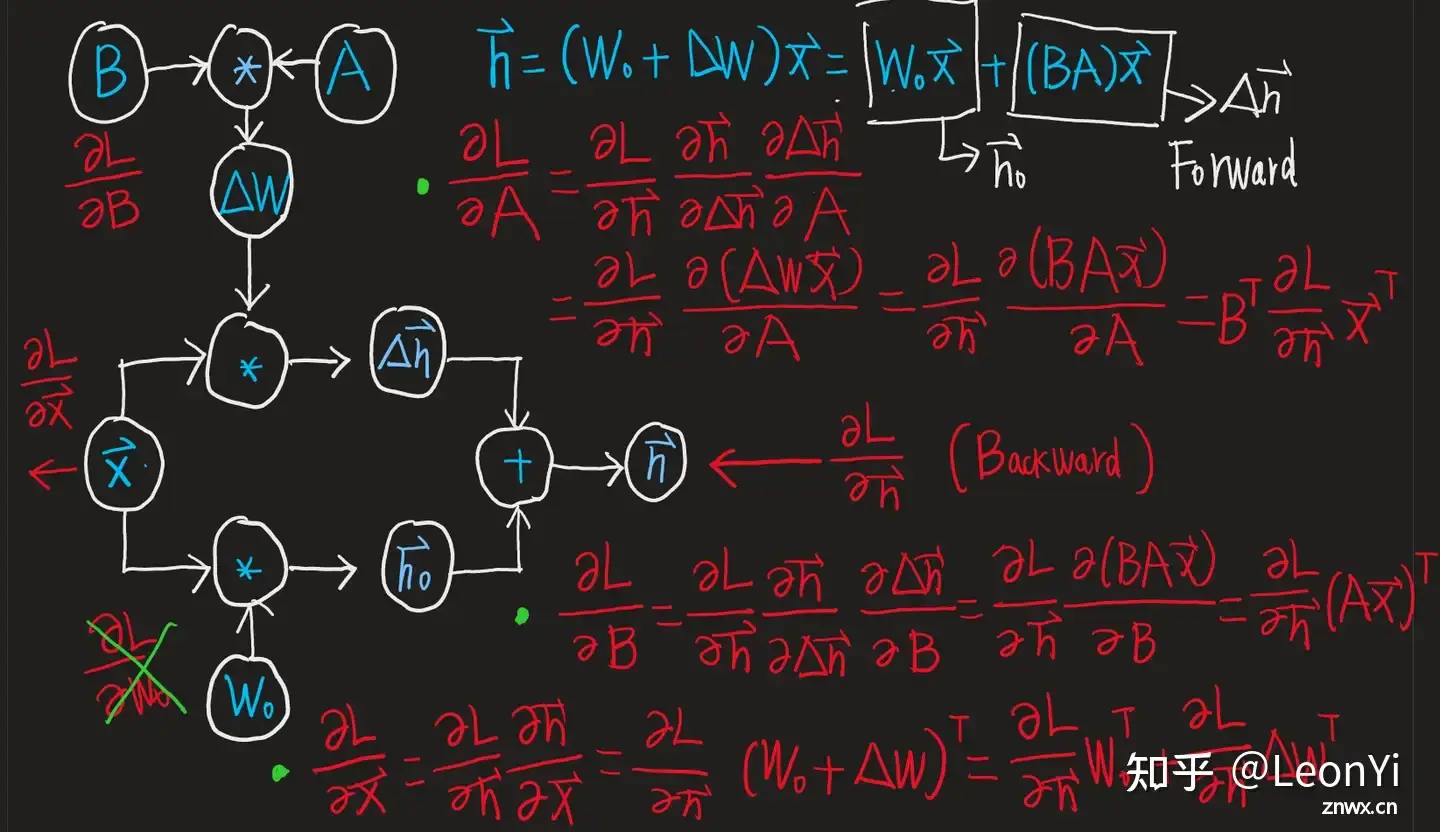 B * A
h⃗ = (W₀ + ΔW)x⃗ = W₀x⃗ + (BA)x⃗ → Δh⃗
→ h⃗₀ Forward
∂L/∂B
ΔW
∂L/∂A = ∂L/∂h⃗ ∂h⃗/∂Δh⃗ ∂Δh⃗/∂A
= ∂L/∂h⃗ ∂(ΔWx⃗)/∂A = ∂L/∂h⃗ ∂(BAx⃗)/∂A = Bᵀ ∂L/∂h⃗ x⃗ᵀ
* Δh⃗
∂L/∂x⃗
x⃗ + h⃗ ← ∂L/∂h⃗ (Backward)
* h⃗₀
∂L/∂B = ∂L/∂h⃗ ∂h⃗/∂Δh⃗ ∂Δh⃗/∂B = ∂L/∂h⃗ ∂(BAx⃗)/∂B = ∂L/∂h⃗ (Ax⃗)ᵀ
∂L/∂W₀
W₀
∂L/∂x⃗ = ∂L/∂h⃗ ∂h⃗/∂x⃗ = ∂L/∂h⃗ (W₀ + ΔW)ᵀ = ∂L/∂h⃗ W₀ᵀ + ∂L/∂h⃗ ΔWᵀ
知乎 @LeonYi
znwx.cn